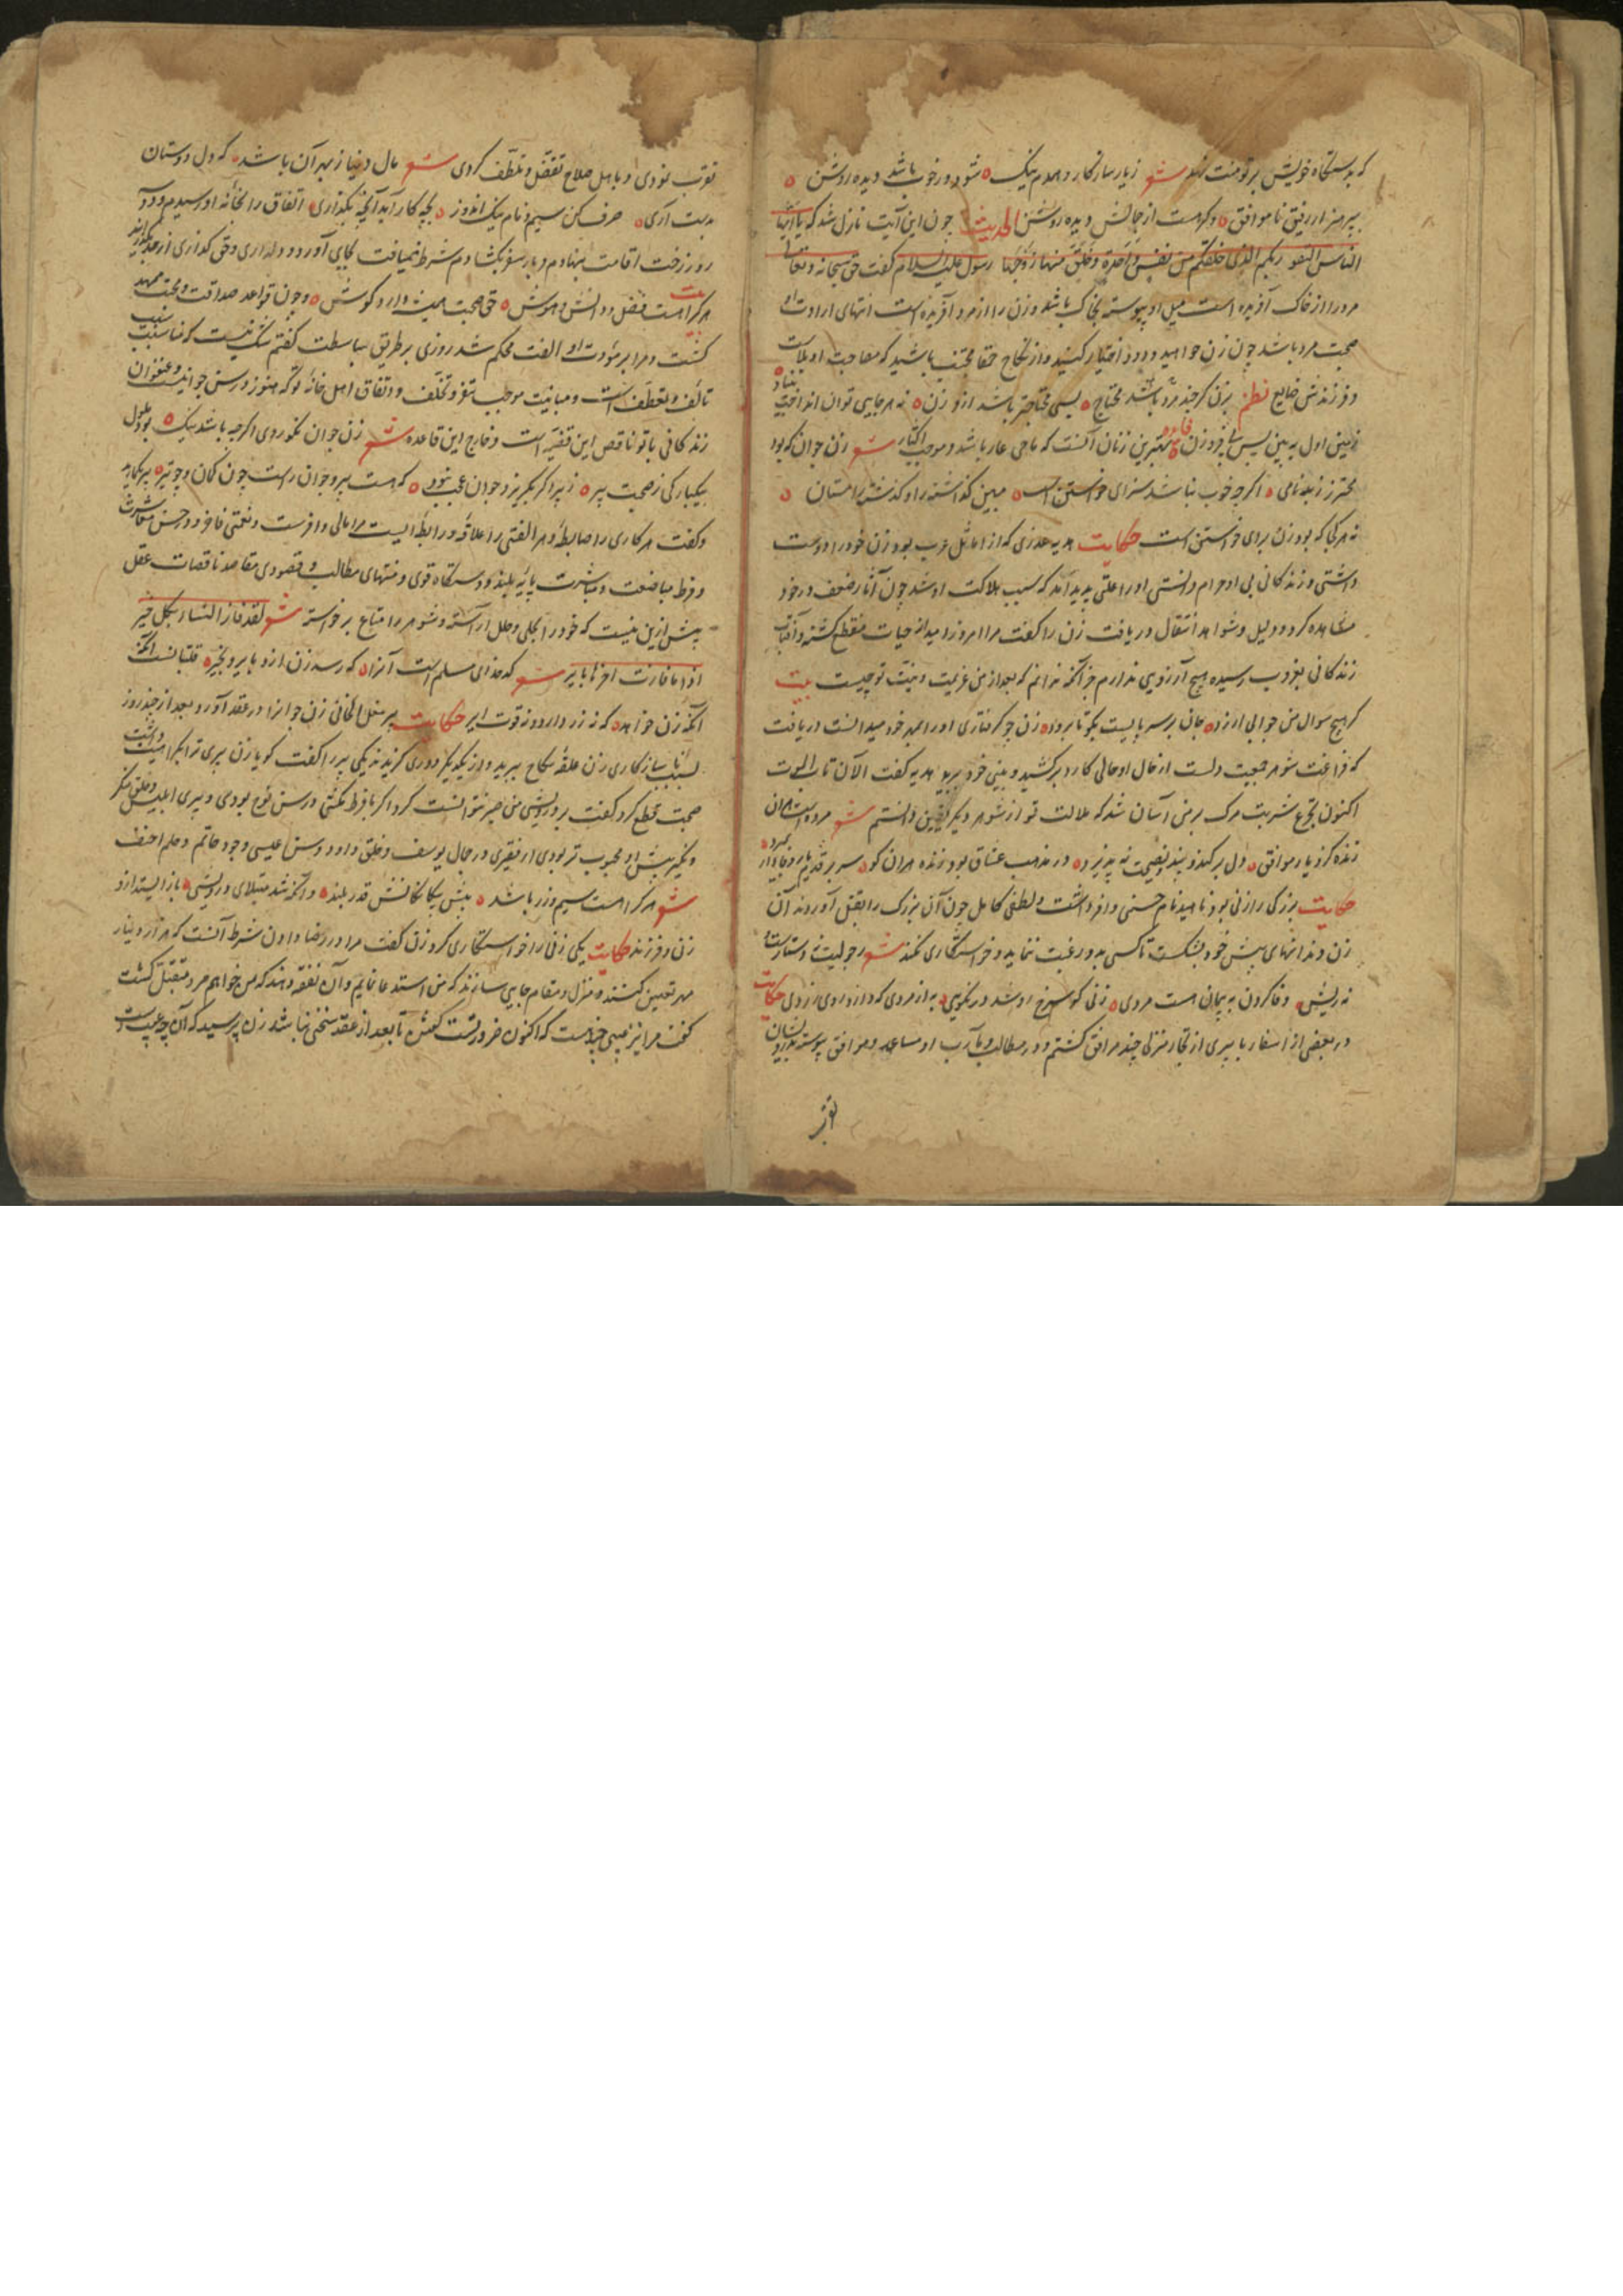 که بدستگاه خویش بر تو منت نهد شعر زیار سازکار و همدم نیک شود در خوب باشد دیده روشن
بپرهیز از رفیق ناموافق وکر هست از جمالش دیده روشن الحدیث چون این آیت نازل شد که یا ایها
الناس اتقوا ربکم الذی خلقکم من نفس واحدة وخلق منها زوجها رسول علیه السلام گفت حق سبحانه وتعالی
مرد را از خاک آفریده است میل او پیوسته بخاک باشد وزن را از مرد آفریده است انتهای ارادت او
صحبت مرد باشد چون زن خواهید ودود اختیار کنید واز نکاح حمقا مجتنب باشید که مصاحبت او بلاست
وفرزندش ضایع نظم بزن کرچند مرد باشد محتاج بسی محتاجتر باشد ازو زن نه هر جایی توان انداخت بنیاد
زمین اول ببین پس فرو زن بهترین زنان آنست که ماحی عار باشد وموجب اکثار شعر زن جوان که بود
محترز ز بدنامی اکرچه خوب نباشد سزای خواستن است مبین کذاشته را وکذشته را مستان
نه هر کجا که بود زن برای خواستن است حکایت هدیه عذری که از اماثل عرب بود زن خود را دوست
داشتی وزندکانی بی او حرام دانستی او را علتی پدید آمد که سبب هلاکت او شد چون آثار ضعف در خود
مشاهده کرد ودلیل وشواهد انتقال دریافت زن را گفت مرا امروز امید از حیات منقطع کشته وآفتاب
زندکانی بغروب رسیده هیچ آرزویی ندارم جز آنکه بدانم که بعد از من عزیمت ونیت تو چیست بیت
کر هیچ سوال من جوابی ارزد جان بر سر پایست بکو تا برود زن چو کرفتاری او را بمهر خود میدانست دریافت
که فراغت شوهر جمعیت دلست از خال او حالی کارد برکشید وبینی خود ببرید هدیه گفت الآن تاب الموت
اکنون تجرع شربت مرک بر من آسان شد که ملالت تو از شوهر دیکر یقین دانستم شعر مرده است آن
زنده کز یار موافق دل برکند وپند ونصیحت نه پذیرد در مذهب عشاق بود زنده هر آن کو سر بر قدم یار وفادار بمیرد
حکایت بزرکی را زنی بود ناهید نام حسنی وافر داشت ولطفی کامل چون آن بزرک را بقتل آوردند آن
زن دندانهای پیش خود بشکست تا کسی بدو رغبت ننماید وخواستکاری نکند شعر رجولیت نه دستارست و
نه ریش وفا کردن به پیمان است مردی زنی کو سرخ رو شد در نکویی به از مردی که دارد روی زردی حکایت
در بعضی از اسفار با پیری از تجار منزلی چند مرافق کشتم ودر مطالب ومآرب او مساعد وموافق پیوسته بدرویشان
تقرب
تقرب نمودی وبا اهل صلاح تفضل وتلطف کردی شعر مال دنیا ز بهر آن باشد که دل دوستان
بدست آری صرف کن سیم ونام نیک اندوز بچه کار آید آنچه بگذاری اتفاق را بخانه او رسیدم ودو
روز رخت اقامت بنهادم وبار سفر بکشادم شرط ضیافت بجای آورد ودلداری وحق کذاری از حد بگذرانید
بیت هر کرا هست فضل ودانش وهوش حق صحبت همیشه دارد کوش وچون قواعد صداقت ومحبت ممهد
کشت ومرا بر مؤدت او الفت محکم شد روزی بر طریق مباسطت گفتم شک نیست که مناسبت سبب
تالف وتعطف است ومباینت موجب تنفر وتخلف واتفاق اهل خانه تو که هنوز در سن جوانیست وعنفوان
زندکانی با تو ناقص این قضیه است وخارج این قاعده شعر زن جوان نکوروی اکرچه باشد نیک بود ملول
بیکبارکی ز صحبت پیر ز پیر اکر بکریزد جوان عجب نبود که هست پیر وجوان راست چون کمان وچو تیر پیر بکارید
وگفت هر کاری را ضابطه وهر الفتی را علاقه ورابطه ایست مرا مالی وافرست ونعمتی فاخر ودر حسن معاشرت
وفرط مباضعت ومباشرت پایه بلند ودستکاه قوی ومنتهای مطالب وقصودی مقاصد ناقصات عقل
بیش ازین نیست که خود را بحلی وحلل آراسته وشوهر را متاع برخواسته شعر لقد فاز النساء بکل خیر
اذا ما فازت احرها بایر شعر کدخدای مسلم است آنرا که رسد زن ازو بایر وبخیر قلتبانست آنکه
آنکه زن خواهد که نه زر دارد ونه قوت ایر حکایت پیر مغل الخانی زن جوانرا در عقد آورد بعد از چند روز
بسبب ناسازکاری زن علقه نکاح ببرید واز یکدیکر دوری کزیدند یکی پیر را گفت کویا زن پیری ترا مکروه داشت
صحبت قطع کرد گفت بر درویشی من صبر نتوانست کرد اکر با فرط نکمتی در سن نوح بودی وپیری ابلیس وخلق منکر
ونکیر پیش او محبوب تر بودی از فقیری در جمال یوسف وخلق داود وسن عیسی وجود حاتم وحلم احنف
شعر هر کرا هست سیم وزر باشد پیش بیکانکانش قدر بلند وآنکه شد مبتلای درویشی باز ایستد ازو
زن وفرزند حکایت یکی زنی را خواستکاری کرد زن گفت مرا در رضا دادن شرط آنست که هزار دینار
مهر تعیین کنند ومنزل ومقام جایی سازند که من استدعا نمایم وآن نفقه دهند که من خواهم مرد متقبل کشت
گفت مرا نیز عیبی چند است که اکنون ضرورتست گفتن تا بعد از عقد سخنی نباشد زن پرسید که آن چه عیب است